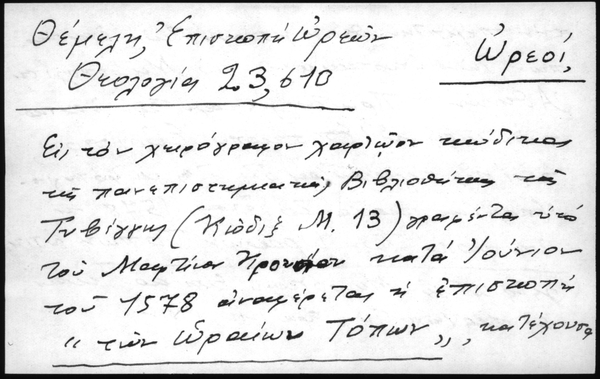 Θέμελη, Ἐπισκοπή Ὠρεών
Ὠρεοί,
Θεολογία 23, 610
Εἰς τόν χειρόγραφον χαρτῷον κώδικα
τῆς πανεπιστημιακῆς Βιβλιοθήκης τῆς
Τυβίγγης (Κῶδιξ Μ. 13) γραφέντα ὑπό
τοῦ Μαρτίνου κατά Ἰούνιον
τοῦ 1578 ἀναφέρεται ἡ ἐπισκοπή
"τῶν Ὡραίων Τόπων", κατέχουσα